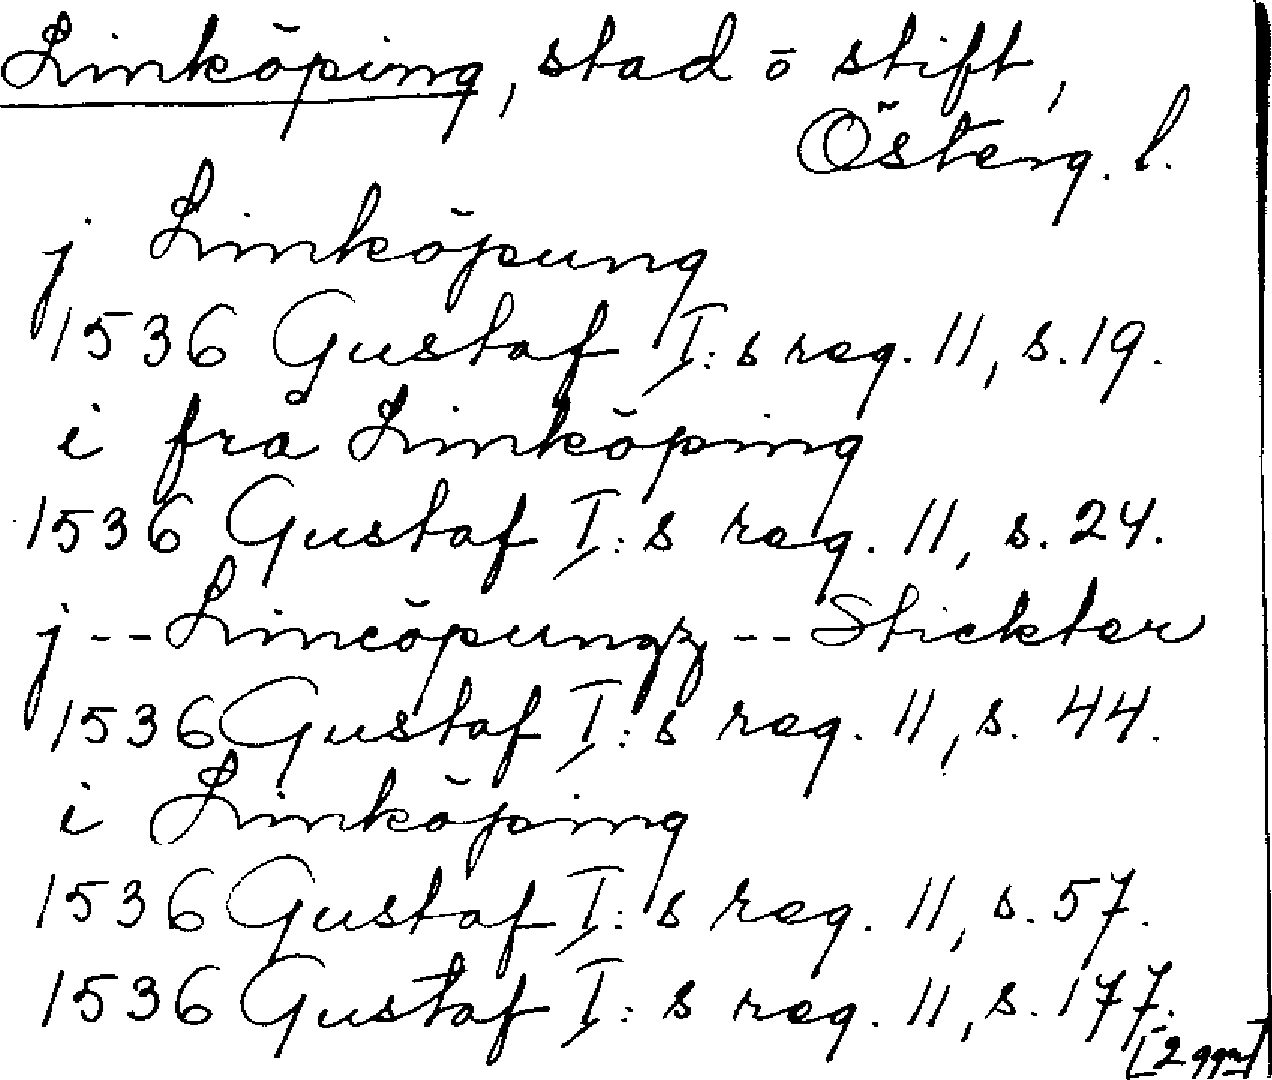 Linköping, stad o stift,
Österg. l.
j Linköpung
1536 Gustaf I:s reg. 11, s. 19.
i frå Linköping
1536 Gustaf I:s reg. 11, s. 24.
j -- Lincöpungz -- Stickter
1536 Gustaf I:s reg. 11, s. 44.
i Linköping
1536 Gustaf I:s reg. 11, s. 57.
1536 Gustaf I:s reg. 11, s. 177.
[2 ggr]